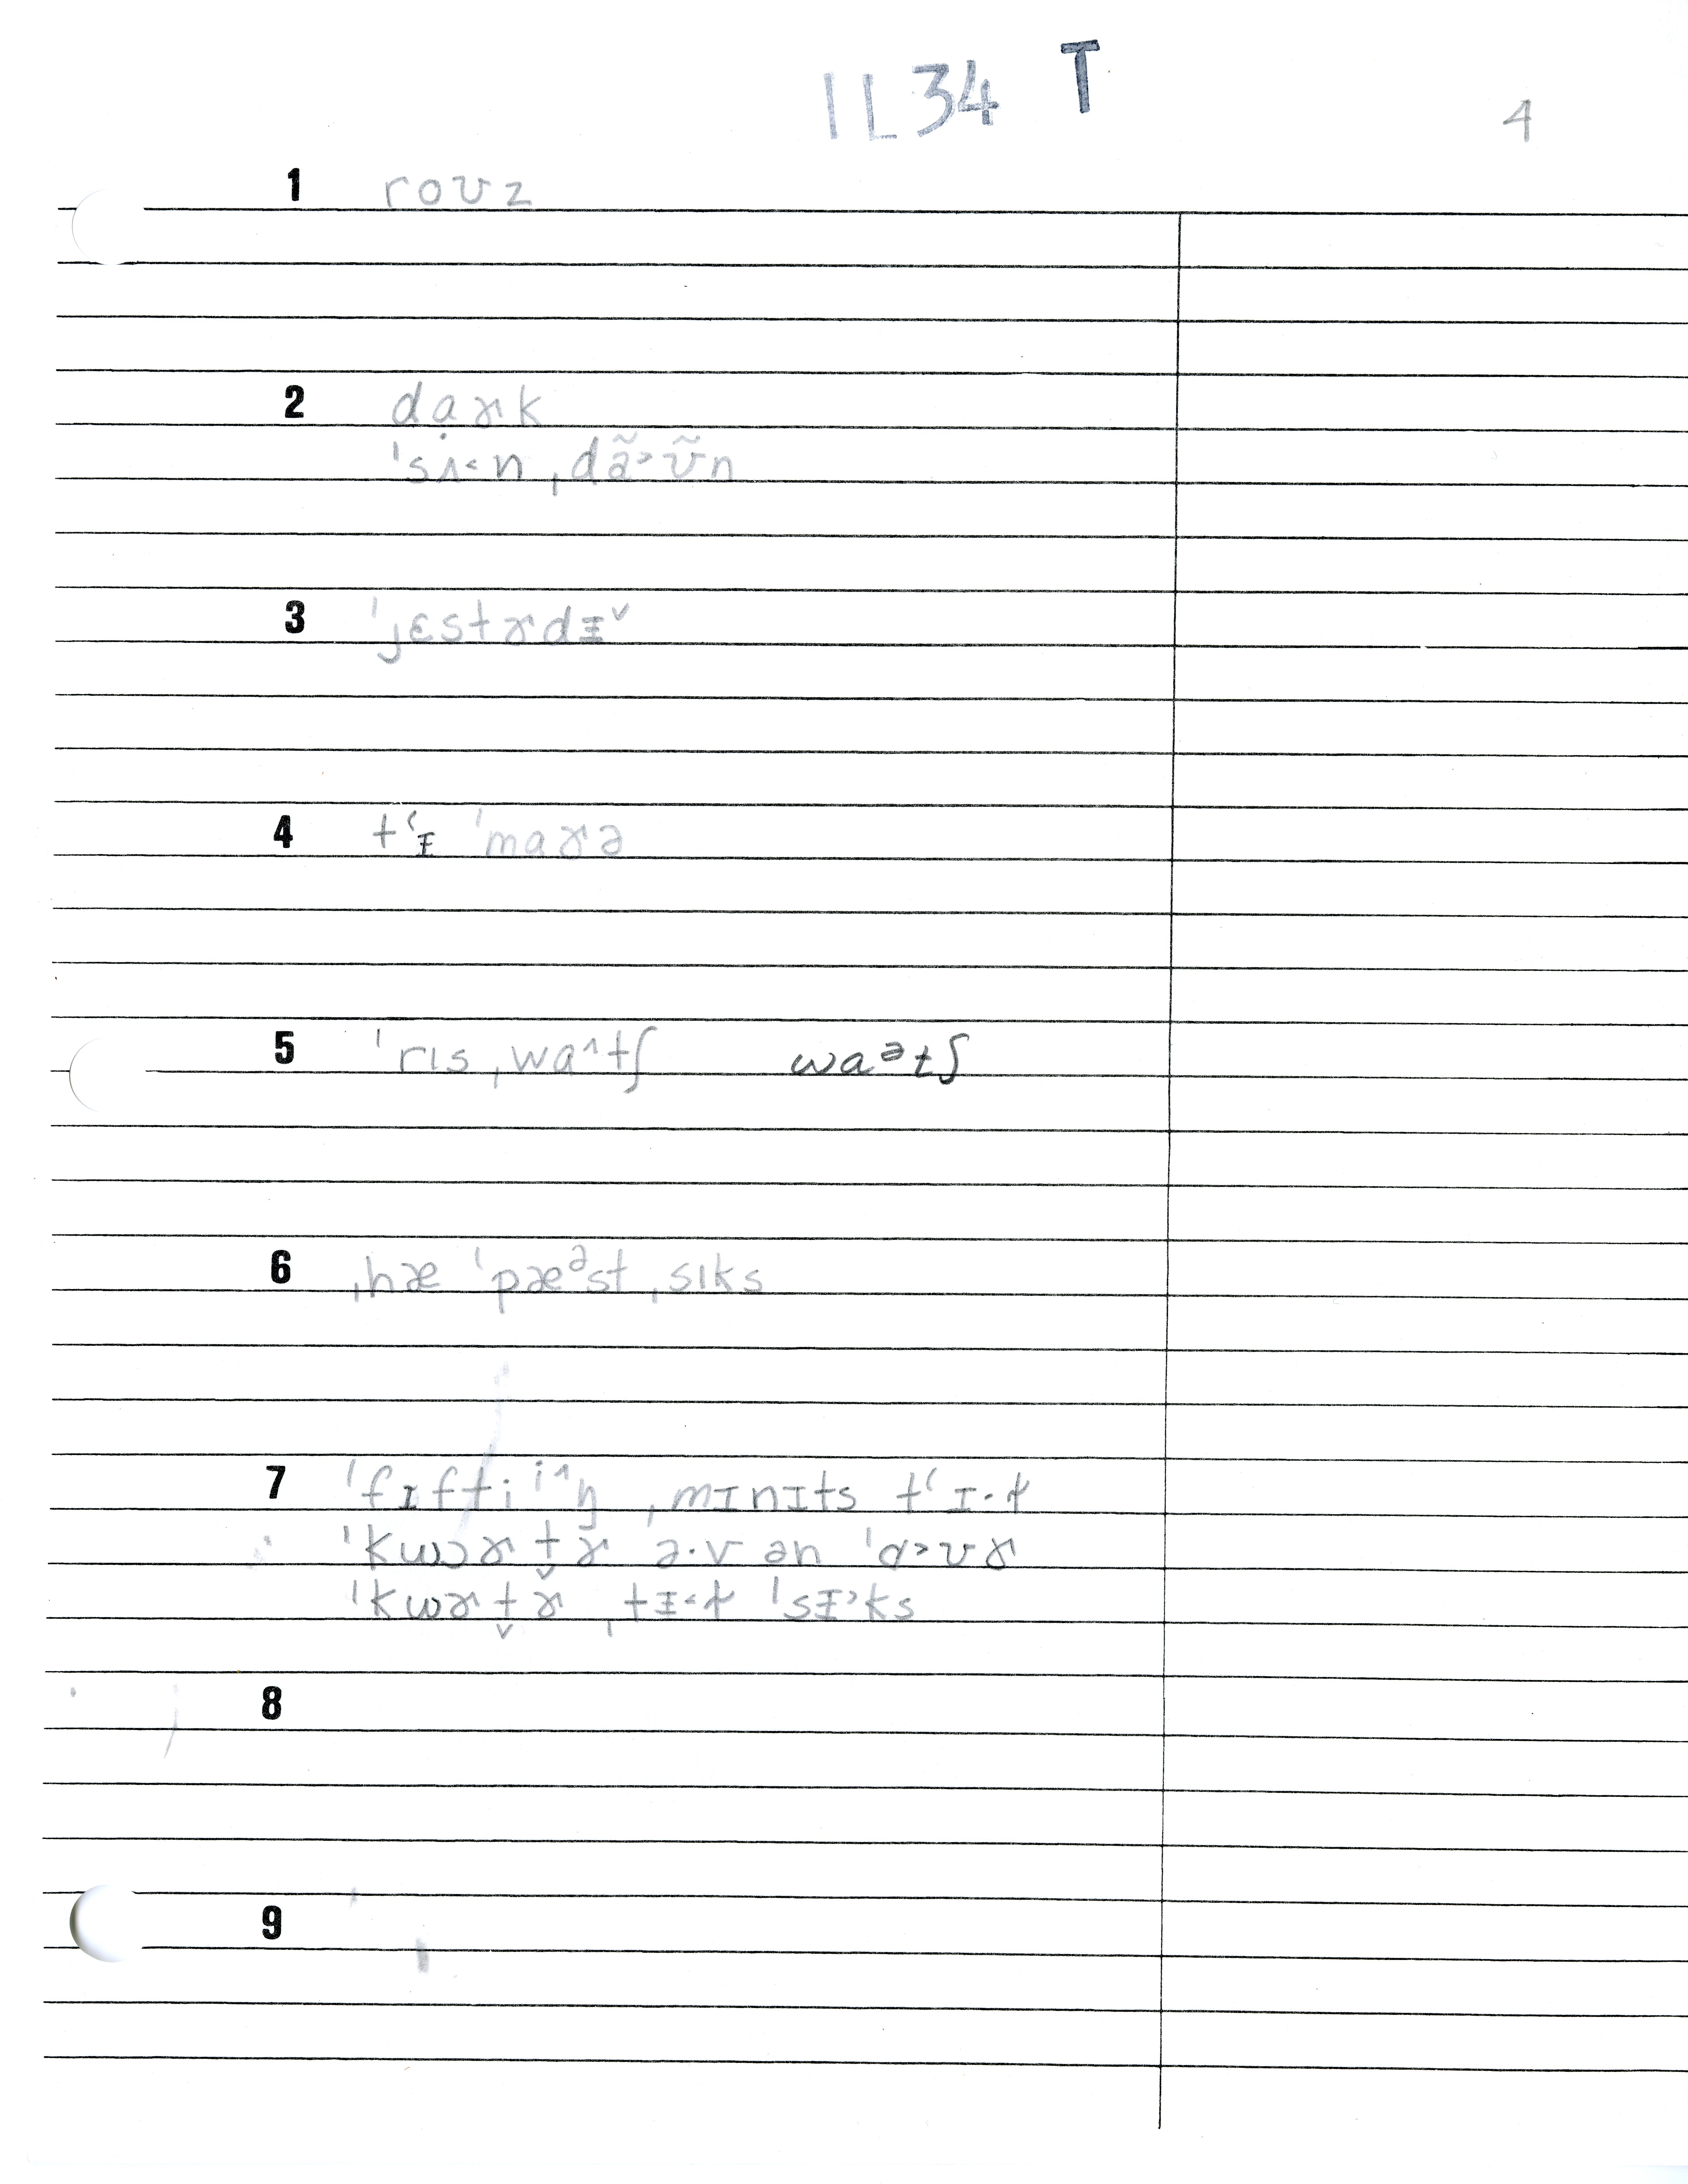 IL34 T
4
1 roʊz
2 daɤk
ˈsʌ̇˂n ˌdã˃ʊ̃n
3 ˈjɛstɤdᵻ˅
4 tʻᵻ ˈmaɤə
5 ˈrɪs ˌwa^tʃ waᵊtʃ
6 ˌhæ ˈpæᵊst ˌsɪks
7 ˈfɪfti ⁱ^n̡ ˌmɪnɪts tʻɪ·ɫ
ˈkwɔɤt̬ɤ ə·v ən ˈɑ˃ʊɤ
ˈkwɤt̬ɤ ˌtᵻ˂ɫ ˈsᵻ˃ks
8
9